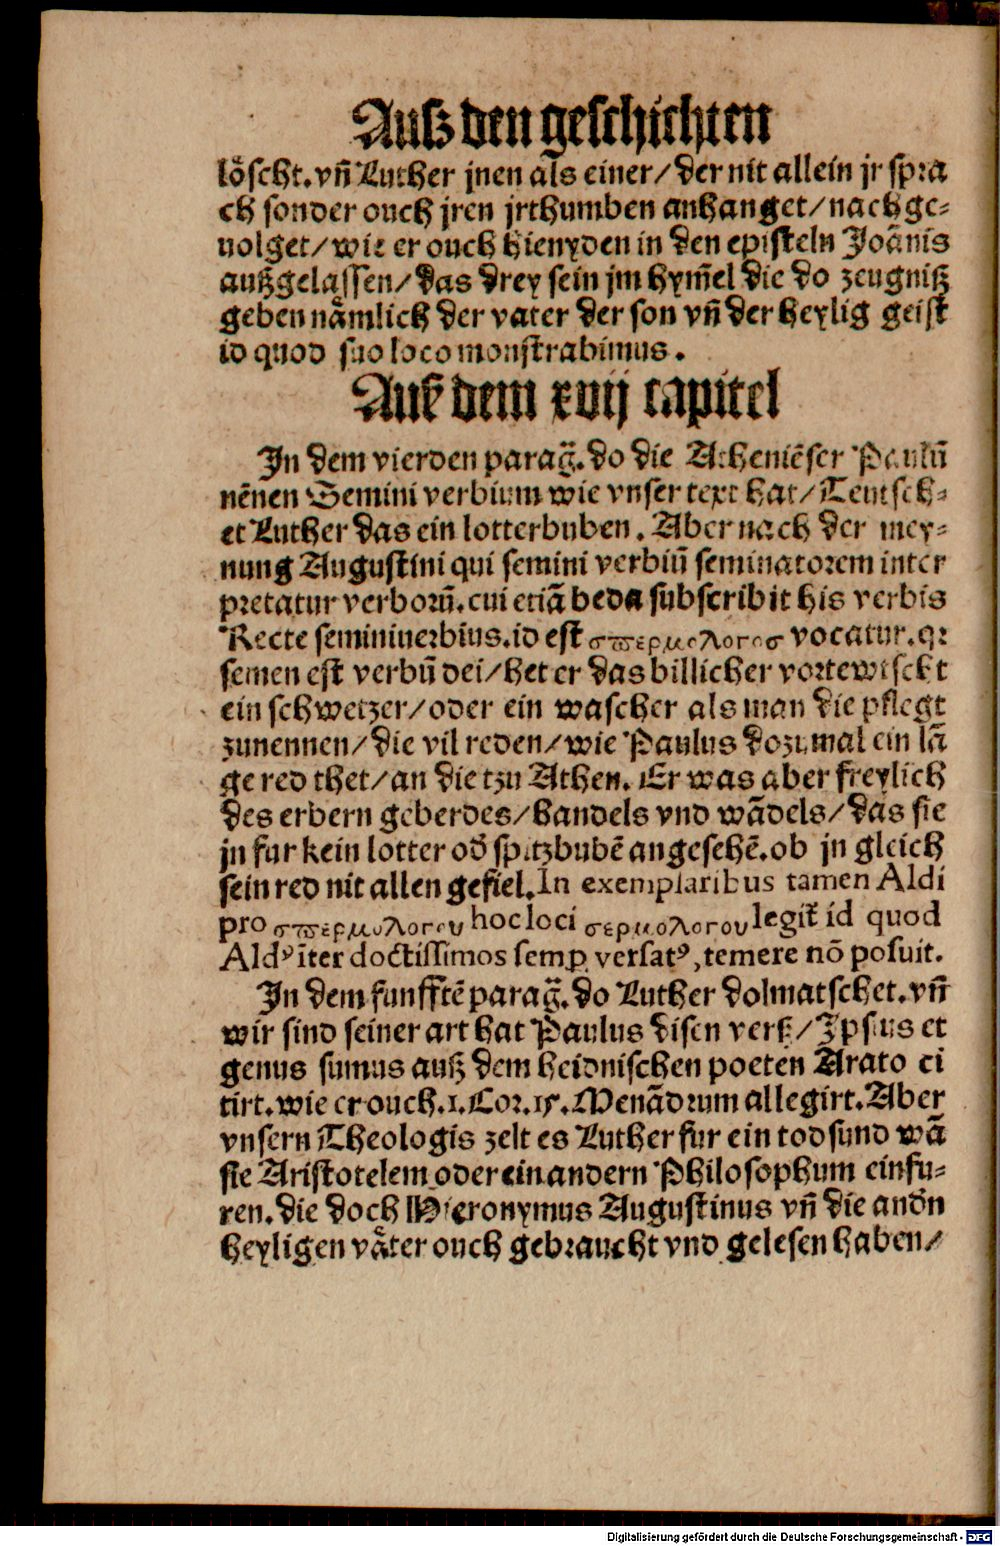 Auſz den geſchichten
loͤſcht. vñ Luther jnen als einer/ der nit allein jr ſpra
ch ſonder ouch jren jrthumben anhanget/ nachge⸗
uolget/ wie er ouch hienyden in den epiſteln Joãnis
auſzgelaſſen/ das drey ſein jm hym̃el die do zeugniſz
geben naͤmlich der vater der ſon vñ der heylig geiſt
id quod ſuo loco monſtrabimus.
Auſz dem xvij capitel
Jn dem vierden parag̃. do die Atheniẽſer Paulũ
nẽnen Semini verbium wie vnſer text hat/ Teutſch⸗
et Luther das ein lotterbuben. Aber nach der mey⸗
nung Auguſtini qui ſemini verbiũ ſeminatorem inter
pretatur verborũ. cui etiã beda ſubſcribit his verbis
Recte ſeminiuerbius. id eſt σπερμολογοσ vocatur. qr
ſemen eſt verbũ dei/ het er das billicher vortewtſcht
ein ſchwetzer/ oder ein waſcher als man die pflegt
zunennen/ die vil reden/ wie Paulus dozumal ein lã
ge red thet/ an die tzu Athen. Er was aber freylich
des erbern geberdes/ handels vnd wãdels/ das ſie
jn fur kein lotter od̕ ſpitzbubẽ angeſehẽ. ob jn gleich
ſein red nit allen gefiel. In exemplaribus tamen Aldi
pro σπερμολογου hoc loci σερμολογου legit̃ id quod
Aldꝰ ĩter doctiſſimos ſemꝑ verſatꝰ, temere nõ poſuit.
Jn dem funfftẽ parag̃. do Luther dolmatſchet. vñ
wir ſind ſeiner art hat Paulus diſen verſz/ Jpſius et
genus ſumus auſz dem heidniſchen poeten Arato ci
tirt. wie er ouch. 1. Cor. 15. Menãdrum allegirt. Aber
vnſern Theologis zelt es Luther fur ein todſund wã
ſie Ariſtotelem oder ein andern Philoſophum einfu⸗
ren. die doch Hieronymus Auguſtinus vñ die and̕n
heyligen vaͤter ouch gebraucht vnd geleſen haben/
Digitalisierung gefördert durch die Deutsche Forschungsgemeinschaft - DFG